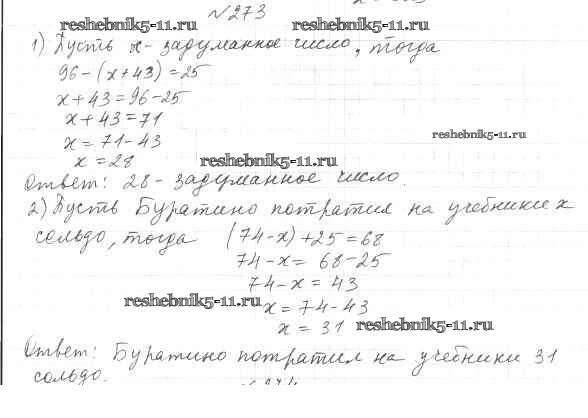 №273
reshebnik5-11.ru reshebnik5-11.ru
1) Пусть x - задуманное число, тогда
96-(x+43)=25
x+43=96-25
x+43=71
reshebnik5-11.ru
x=71-43
x=28
reshebnik5-11.ru
Ответ: 28 - задуманное число.
2) Пусть Буратино потратил на учебники x
сольдо, тогда (74-x)+25=68
74-x= 68-25
74-x= 43
reshebnik5-11.ru
x=74-43
x = 31
reshebnik5-11.ru
Ответ: Буратино потратил на учебники 31
сольдо.